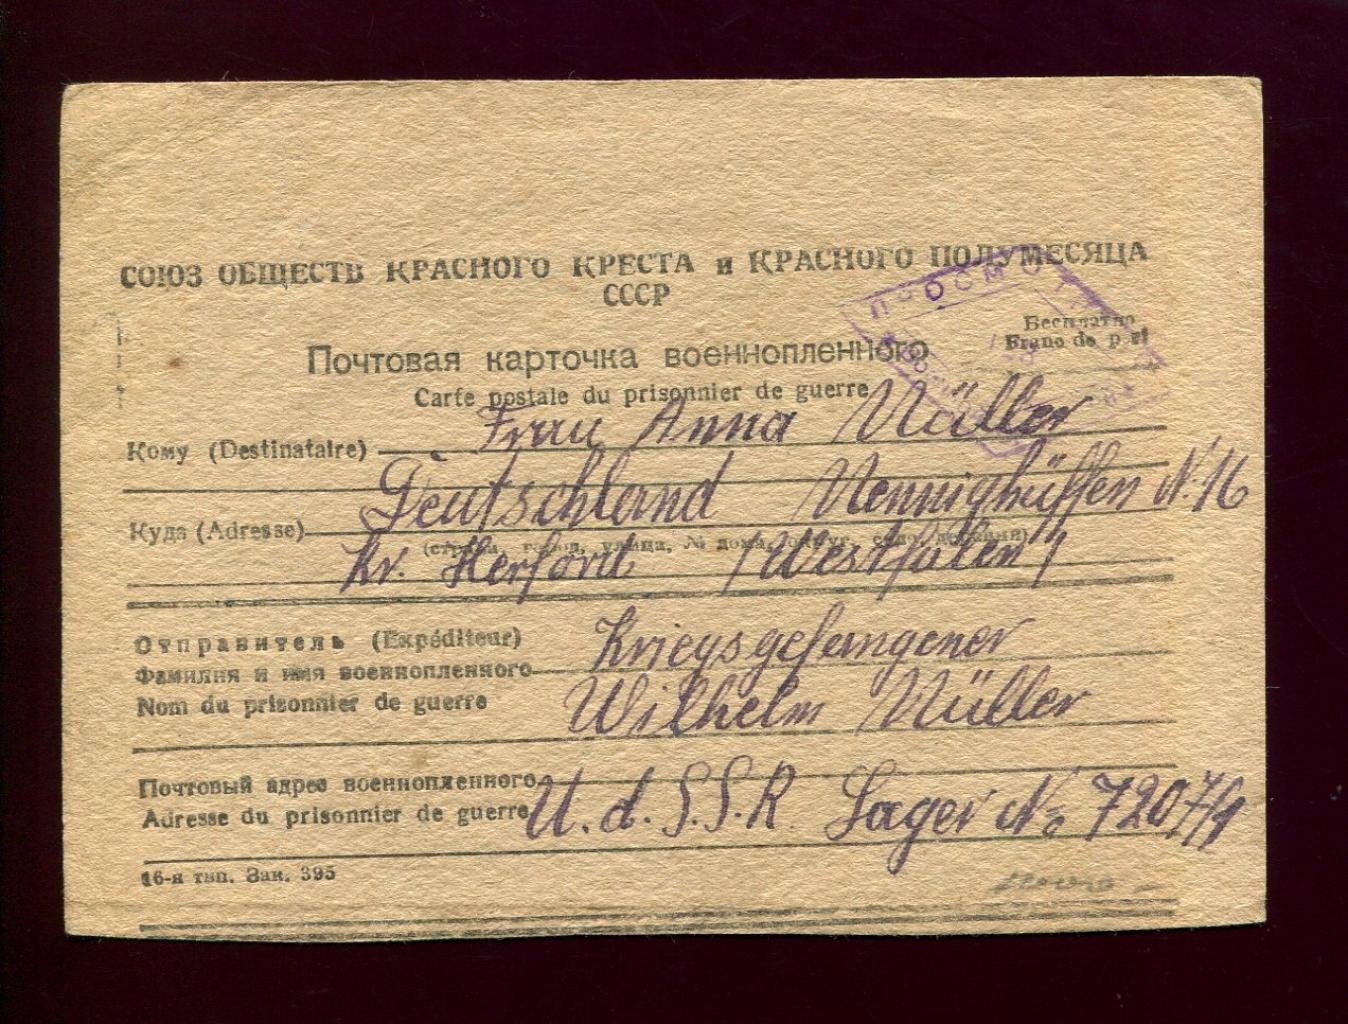 СОЮЗ ОБЩЕСТВ КРАСНОГО КРЕСТА и КРАСНОГО ПОЛУМЕСЯЦА
СССР
Бесплатно
Franc de port
Почтовая карточка военнопленного
Carte postale du prisonnier de guerre
Кому (Destinataire) Frau Anna Müller
Deutschland Mennighüffen N. 16
Куда (Adresse)
(страна, город, улица, № дома, округ, село, деревня)
Kr. Herford /Westfalen/
Отправитель (Expéditeur) Kriegsgefangener
Фамилия и имя военнопленного
Nom du prisonnier de guerre Wilhelm Müller
Почтовый адрес военнопленного
Adresse du prisonnier de guerre U.d.S.S.R. Lager No 7207/1
16-я тип. Зак. 395